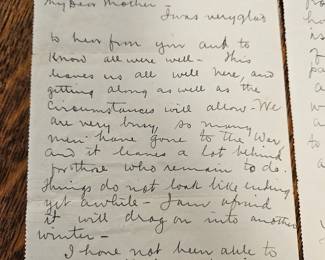 My Dear Mother – I was very glad
to hear from you and to
Know all were well – This
leaves us all well here, and
getting along as well as the
Circumstances will allow – We
are very busy, so many
men have gone to the War
and it leaves a lot behind
for those who remain to do.
Things do not look like ending
yet awhile – I am afraid
it will drag on into another
winter –
I have not been able to